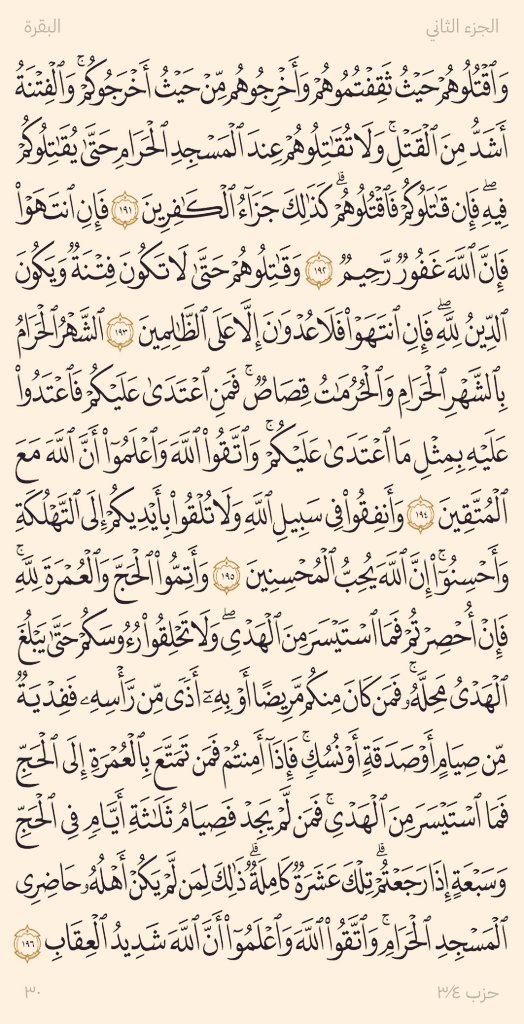 الجزء الثاني
البقرة
وَٱقْتُلُوهُمْ حَيْثُ ثَقِفْتُمُوهُمْ وَأَخْرِجُوهُم مِّنْ حَيْثُ أَخْرَجُوكُمْ ۚ وَٱلْفِتْنَةُ
أَشَدُّ مِنَ ٱلْقَتْلِ ۚ وَلَا تُقَٰتِلُوهُمْ عِندَ ٱلْمَسْجِدِ ٱلْحَرَامِ حَتَّىٰ يُقَٰتِلُوكُمْ
فِيهِ ۖ فَإِن قَتَلُوكُمْ فَٱقْتُلُوهُمْ ۗ كَذَٰلِكَ جَزَآءُ ٱلْكَٰفِرِينَ ١٩١ فَإِنِ ٱنتَهَوْا۟
فَإِنَّ ٱللَّهَ غَفُورٌ رَّحِيمٌ ١٩٢ وَقَٰتِلُوهُمْ حَتَّىٰ لَا تَكُونَ فِتْنَةٌ وَيَكُونَ
ٱلدِّينُ لِلَّهِ ۖ فَإِنِ ٱنتَهَوْا۟ فَلَا عُدْوَٰنَ إِلَّا عَلَى ٱلظَّٰلِمِينَ ١٩٣ ٱلشَّهْرُ ٱلْحَرَامُ
بِٱلشَّهْرِ ٱلْحَرَامِ وَٱلْحُرُمَٰتُ قِصَاصٌ ۚ فَمَنِ ٱعْتَدَىٰ عَلَيْكُمْ فَٱعْتَدُوا۟
عَلَيْهِ بِمِثْلِ مَا ٱعْتَدَىٰ عَلَيْكُمْ ۚ وَٱتَّقُوا۟ ٱللَّهَ وَٱعْلَمُوٓا۟ أَنَّ ٱللَّهَ مَعَ
ٱلْمُتَّقِينَ ١٩٤ وَأَنفِقُوا۟ فِى سَبِيلِ ٱللَّهِ وَلَا تُلْقُوا۟ بِأَيْدِيكُمْ إِلَى ٱلتَّهْلُكَةِ
وَأَحْسِنُوٓا۟ ۚ إِنَّ ٱللَّهَ يُحِبُّ ٱلْمُحْسِنِينَ ١٩٥ وَأَتِمُّوا۟ ٱلْحَجَّ وَٱلْعُمْرَةَ لِلَّهِ ۚ
فَإِنْ أُحْصِرْتُمْ فَمَا ٱسْتَيْسَرَ مِنَ ٱلْهَدْىِ ۖ وَلَا تَحْلِقُوا۟ رُءُوسَكُمْ حَتَّىٰ يَبْلُغَ
ٱلْهَدْىُ مَحِلَّهُۥ ۚ فَمَن كَانَ مِنكُم مَّرِيضًا أَوْ بِهِۦٓ أَذًى مِّن رَّأْسِهِۦ فَفِدْيَةٌ
مِّن صِيَامٍ أَوْ صَدَقَةٍ أَوْ نُسُكٍ ۚ فَإِذَآ أَمِنتُمْ فَمَن تَمَتَّعَ بِٱلْعُمْرَةِ إِلَى ٱلْحَجِّ
فَمَا ٱسْتَيْسَرَ مِنَ ٱلْهَدْىِ ۚ فَمَن لَّمْ يَجِدْ فَصِيَامُ ثَلَٰثَةِ أَيَّامٍ فِى ٱلْحَجِّ
وَسَبْعَةٍ إِذَا رَجَعْتُمْ ۗ تِلْكَ عَشَرَةٌ كَامِلَةٌ ۗ ذَٰلِكَ لِمَن لَّمْ يَكُنْ أَهْلُهُۥ حَاضِرِى
ٱلْمَسْجِدِ ٱلْحَرَامِ ۚ وَٱتَّقُوا۟ ٱللَّهَ وَٱعْلَمُوٓا۟ أَنَّ ٱللَّهَ شَدِيدُ ٱلْعِقَابِ ١٩٦
حزب ٣/٤
٣٠